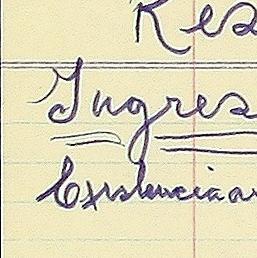 Res
Ingres
Existencia a